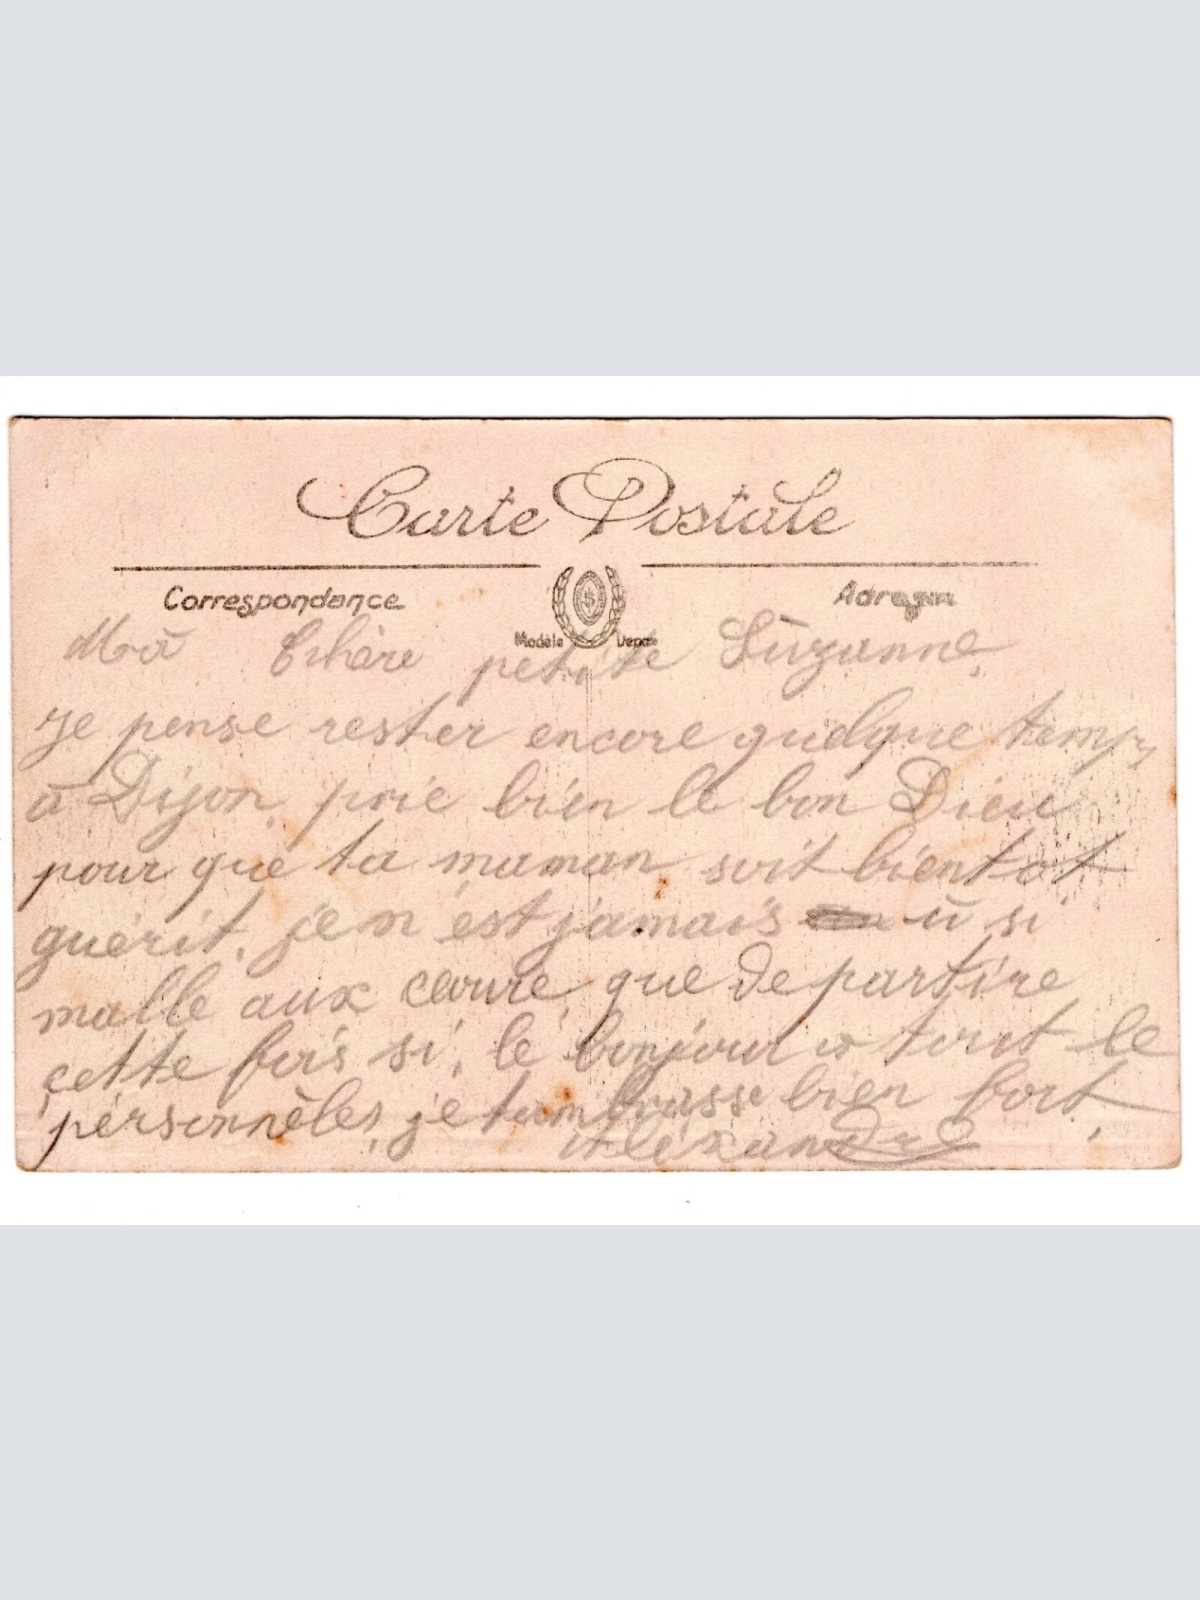 Carte Postale
Correspondance
Adresse
Modèle Déposé
Ma Chère petite Suzanne,
Je pense rester encore quelque temps
à Dijon, prie bien le bon Dieu
pour que ta maman soit bientot
guérit, je n'est jamais ù si
malle aux ceoure, que de partire
cette fois si, le bonjour a tout le
personnèles, je tambrasse bien fort,
Aléxandre